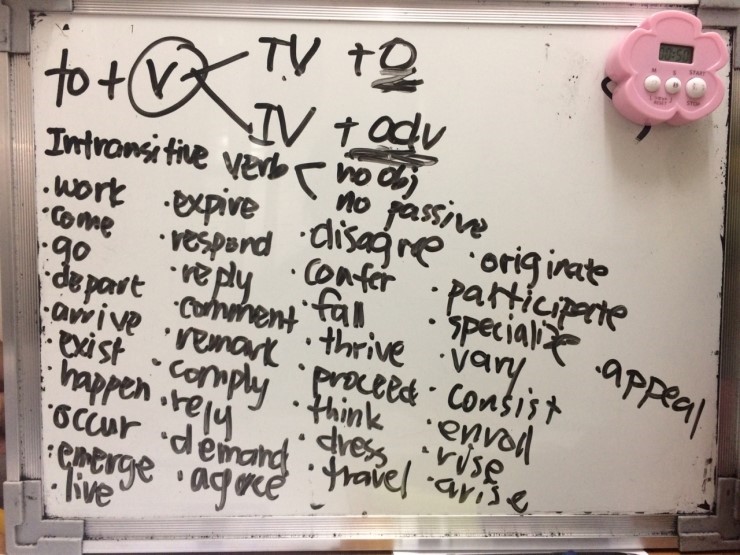 to + V TV + O
IV + adv
Intransitive verb no obj
no passive
· work
· come
· go
· depart
· arrive
· exist
· happen
· occur
· emerge
· live
· expire
· respond
· reply
· comment
· remark
· comply
· rely
· demand
· agree
· disagree
· confer
· fall
· thrive
· proceed
· think
· dress
· travel
· originate
· participate
· specialize
· vary
· consist
· enroll
· rise
· arise
· appeal
M S START